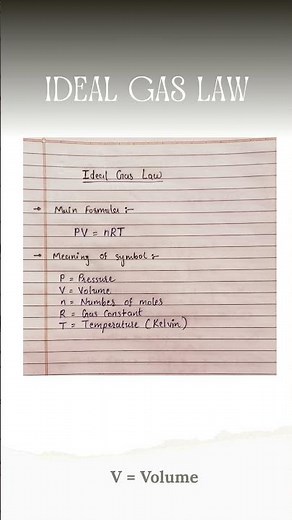 IDEAL GAS LAW
Ideal Gas Law
→ Main Formula :-
PV = nRT
→ Meaning of symbol :-
P = Pressure
V = Volume
n = Number of moles
R = Gas Constant
T = Temperature (Kelvin)
V = Volume